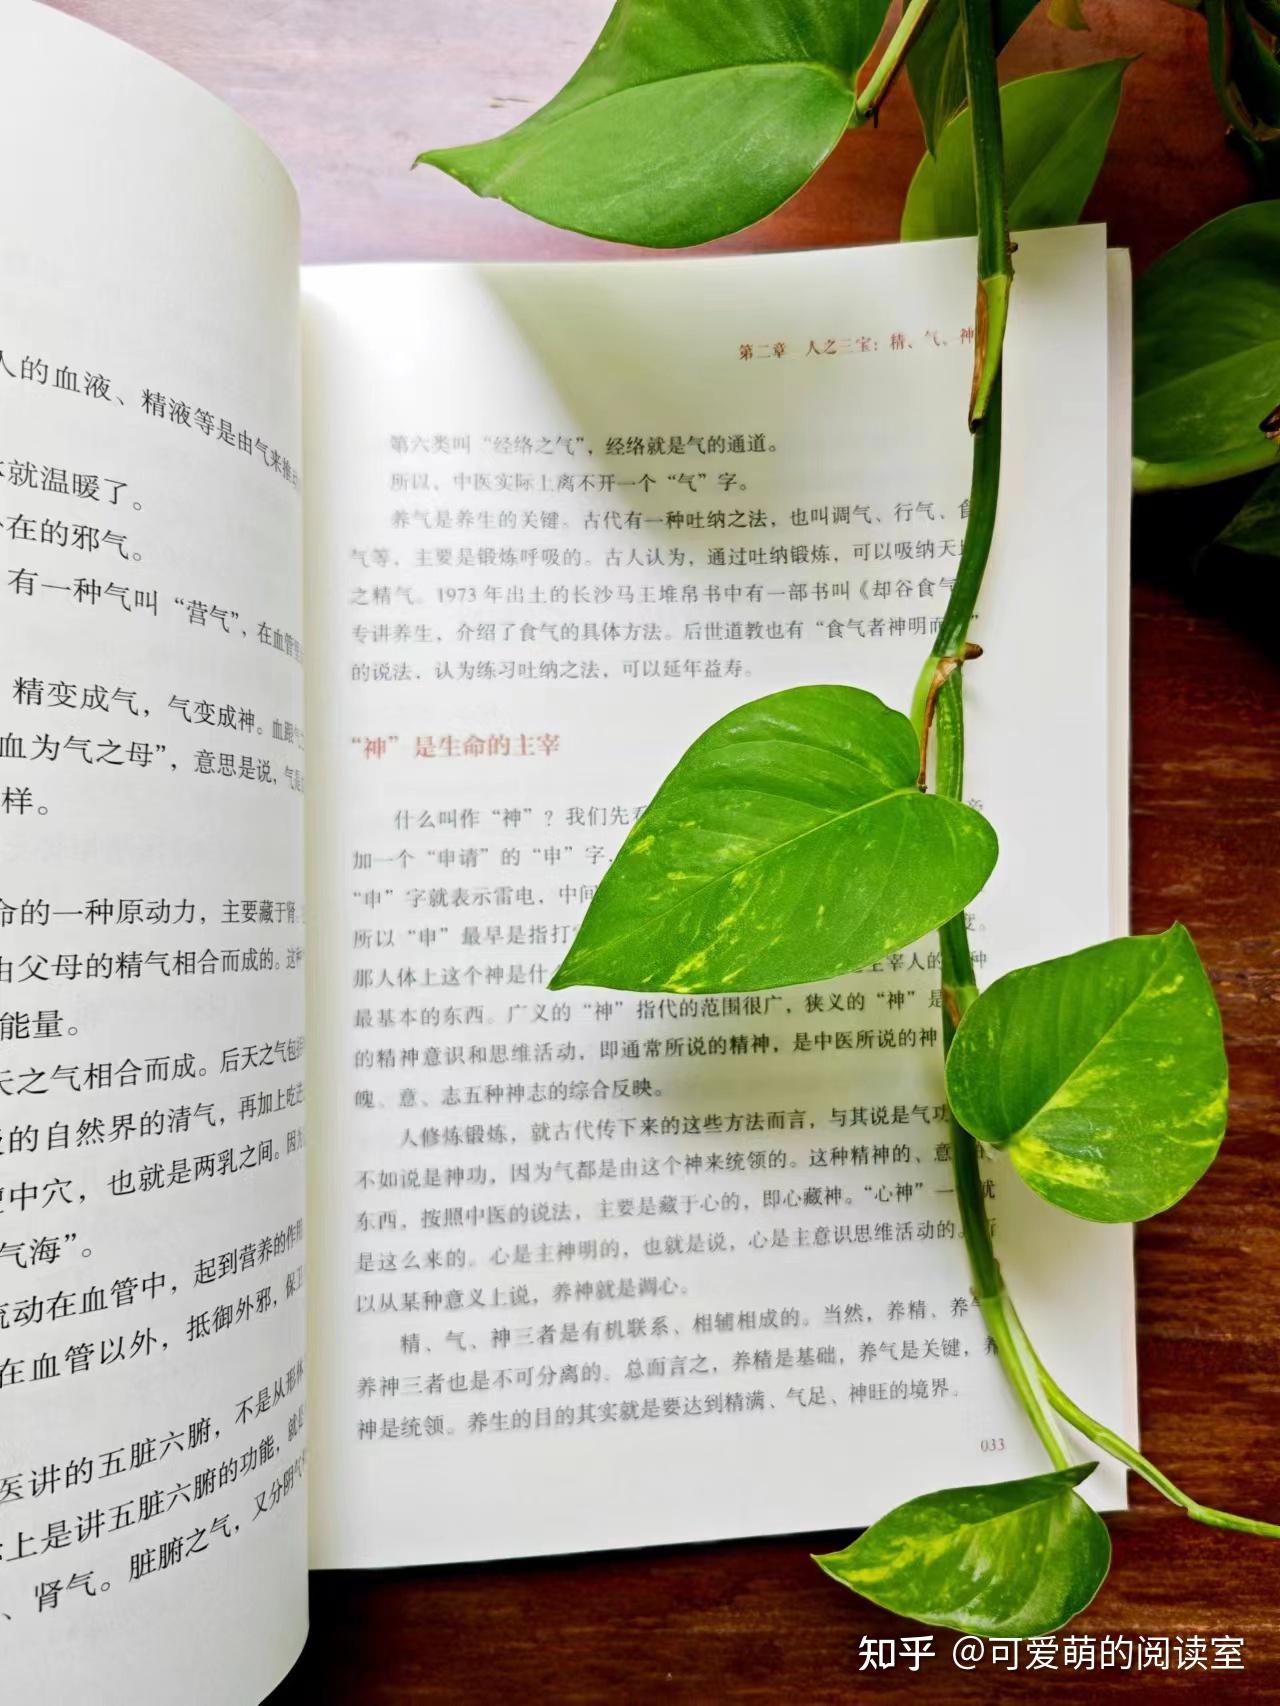 人的血液、精液等是由气来推动
体就温暖了。
外在的邪气。
有一种气叫“营气”，在血管里
精变成气，气变成神。血跟气
血为气之母”，意思是说，气是
样。
命的一种原动力，主要藏于肾。
由父母的精气相合而成的。这种
能量。
天之气相合而成。后天之气包括
的自然界的清气，再加上吃进
中穴，也就是两乳之间。因为
气海”。
流动在血管中，起到营养的作用
在血管以外，抵御外邪，保卫
医讲的五脏六腑，不是从形体
上是讲五脏六腑的功能，就是
、肾气。脏腑之气，又分阴气
第二章 人之三宝：精、气、神
第六类叫“经络之气”，经络就是气的通道。
所以，中医实际上离不开一个“气”字。
养气是养生的关键。古代有一种吐纳之法，也叫调气、行气、食
气等，主要是锻炼呼吸的。古人认为，通过吐纳锻炼，可以吸纳天地
之精气。1973年出土的长沙马王堆帛书中有一部书叫《却谷食气
专讲养生，介绍了食气的具体方法。后世道教也有“食气者神明而
的说法，认为练习吐纳之法，可以延年益寿。
“神”是生命的主宰
什么叫作“神”？我们先看
加一个“申请”的“申”字，
“申”字就表示雷电，中间
所以“申”最早是指打
那人体上这个神是什 主宰人的 种
最基本的东西。广义的“神”指代的范围很广，狭义的“神”是
的精神意识和思维活动，即通常所说的精神，是中医所说的神
魄、意、志五种神志的综合反映。
人修炼锻炼，就古代传下来的这些方法而言，与其说是气功
不如说是神功，因为气都是由这个神来统领的。这种精神的、意
东西，按照中医的说法，主要是藏于心的，即心藏神。“心神”一 就
是这么来的。心是主神明的，也就是说，心是主意识思维活动的。所
以从某种意义上说，养神就是调心。
精、气、神三者是有机联系、相辅相成的。当然，养精、养气
养神三者也是不可分离的。总而言之，养精是基础，养气是关键，养
神是统领。养生的目的其实就是要达到精满、气足、神旺的境界。
033
知乎 @可爱萌的阅读室